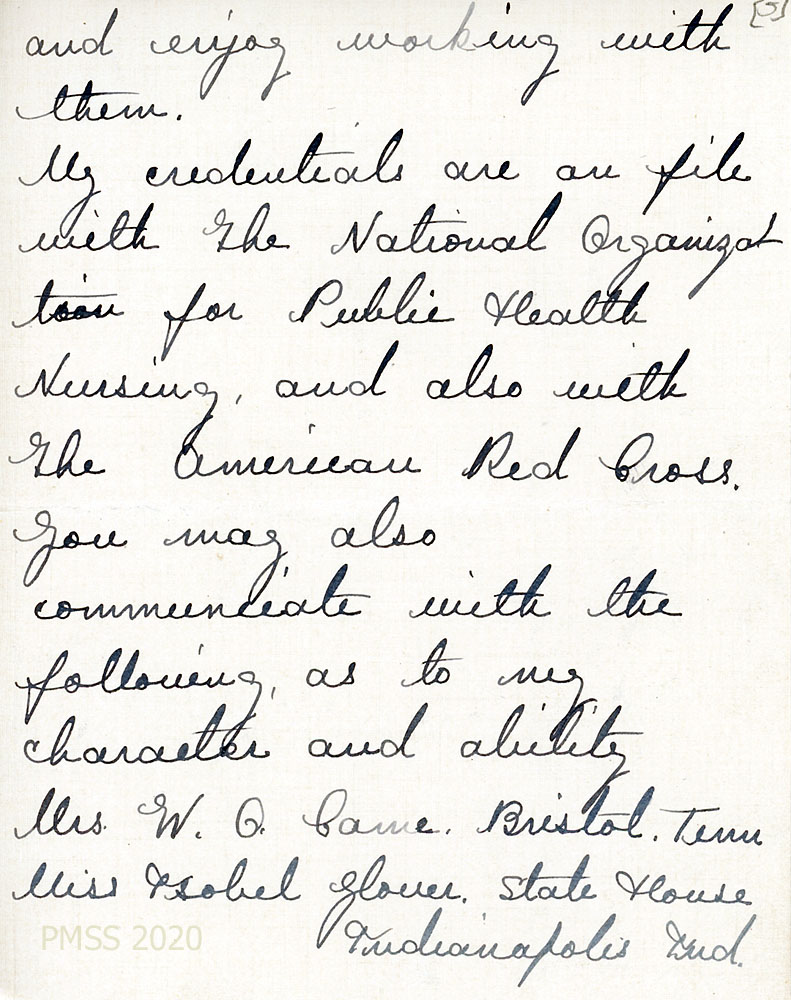 [3]
and enjoy working with
them.
My credentials are on file
with The National Organizat
tion for Public Health
Nursing, and also with
The American Red Cross.
You may also
communciate with the
following, as to my
character and ability
Mrs. W. O. Came. Bristol. Tenn
Miss Isobel Glover. State House
Indianapolis Ind.
PMSS 2020